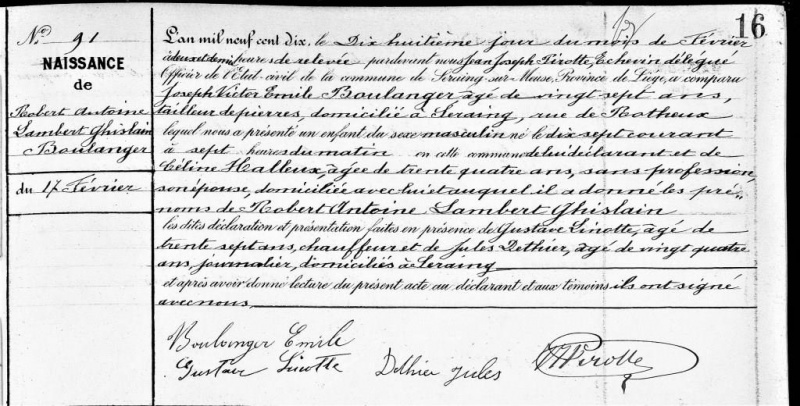 16
N° 91
NAISSANCE
de
Robert Antoine
Lambert Ghislain
Boulanger
du 17 Février
L'an mil neuf cent dix, le Dix huitième jour du mois de Février
à deux et demi heures de relevée pardevant nous Jean Joseph Pirotte, Echevin délégué
Officier de l'Etat-civil de la commune de Seraing-sur-Meuse, Province de Liége, a comparu
Joseph Victor Emile Boulanger âgé de vingt sept ans,
tailleur de pierres, domicilié à Seraing, rue de Rotheux
lequel nous a présenté un enfant du sexe masculin né le dix sept courant
à sept heures du matin en cette commune de lui déclarant et de
Céline Halleux, âgée de trente quatre ans, sans profession,
son épouse, domiciliée avec lui et auquel il a donné les pré-
noms de Robert Antoine Lambert Ghislain
les dites déclaration et présentation faites en présence de Gustave Linotte, âgé de
trente sept ans, chauffeur et de Jules Dethier, âgé de vingt quatre
ans, journalier, domiciliés à Seraing
et après avoir donné lecture du présent acte au déclarant et aux témoins ils ont signé
avec nous
Boulanger Emile
Gustave Linotte Dethier Jules JJPirotte